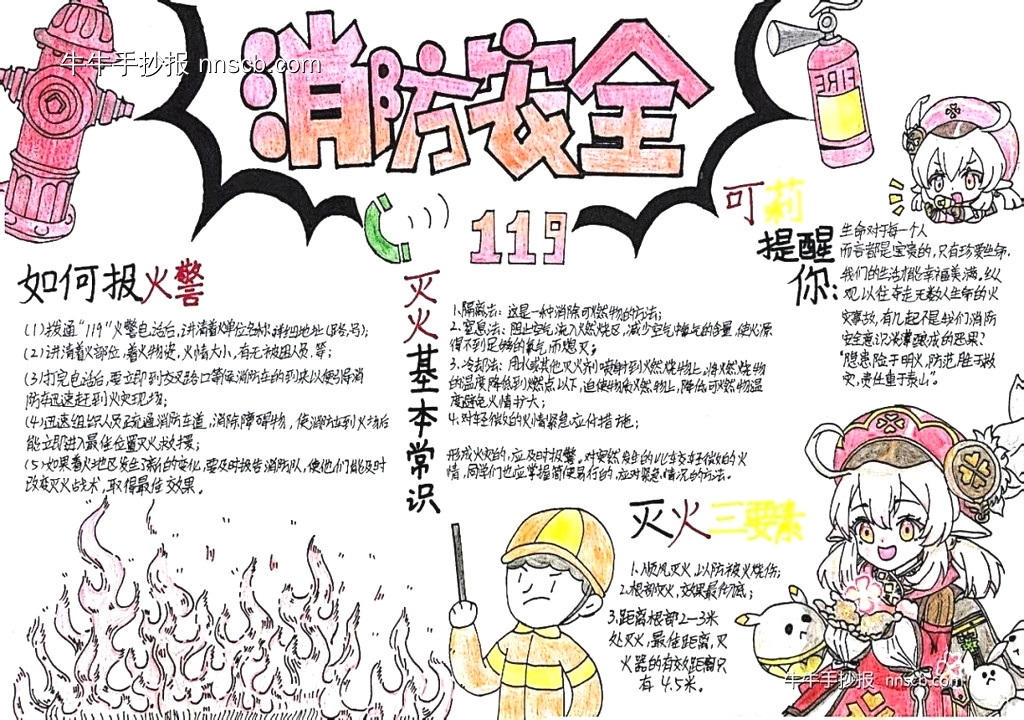 牛牛手抄报 nnscb.com
消防安全
119
FIRE
如何报火警
(1)拨通“119”火警电话后,讲清着火单位名称、详细地址(路名、号);
(2)讲清着火部位,着火物资,火情大小,有无被困人员,等;
(3)打完电话后,要立即到交叉路口等候消防车的到来以便引导消
防车迅速赶到火灾现场;
(4)迅速组织人员疏通消防车道,消除障碍物,使消防车到火场后
能立即进入最佳位置灭火救援;
(5)如果着火地区发生了新的变化,要及时报告消防队,使他们能及时
改变灭火战术,取得最佳效果。
灭火基本常识
1.隔离法:这是一种消除可燃物的方法;
2.窒息法:阻止空气流入燃烧区,减少空气中氧气的含量,使火源
得不到足够的氧气而熄灭;
3.冷却法:用水或其他灭火剂喷射到燃烧物上,将燃烧物
的温度降低到燃点以下,迫使物质燃烧物上,降低可燃物温
度避免火情扩大;
4.对轻微的火情紧急应付措施;
形成火灾的,应及时报警。对突然发生的比较轻微的火
情,同学们也应掌握简便易行的,应对紧急情况的方法。
可莉
提醒
你:
生命对于每一个人
而言都是宝贵的,只有珍爱生命,
我们的生活才能幸福美满。纵
观以往夺走无数人生命的火
灾事故,有几起不是我们消防
安全意识淡薄酿成的恶果?
“隐患险于明火,防范胜于救
灾,责任重于泰山”。
灭火三要素
1.顺风灭火,以防被火烧伤;
2.根部灭火,效果最彻底;
3.距离根部2-3米
处灭火,最佳距离,灭
火器的有效距离只
有4.5米。
牛牛手抄报 nnscb.com